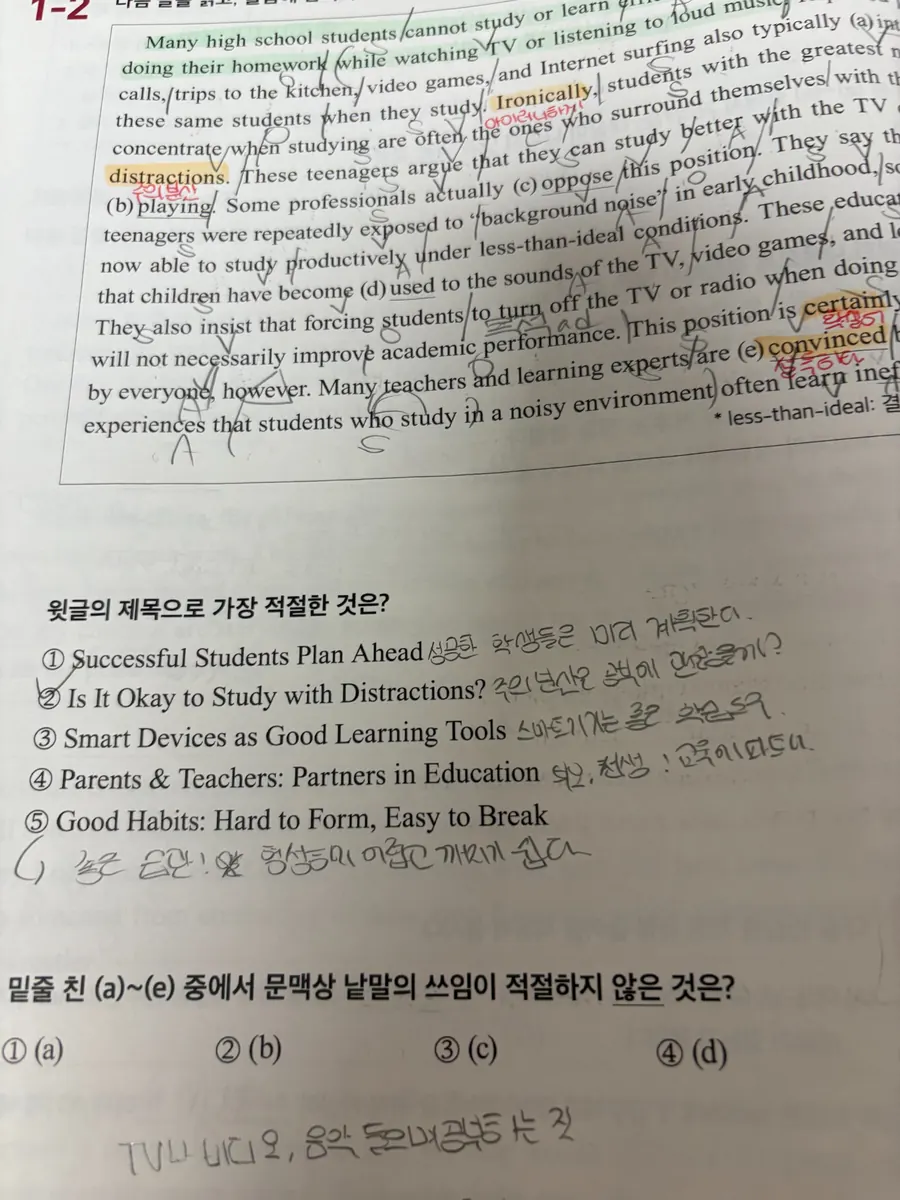 1-2
Many high school students cannot study or learn
doing their homework while watching TV or listening to loud music
calls, trips to the kitchen, video games, and Internet surfing also typically (a)
these same students when they study. Ironically, students with the greatest
아이러니하게
concentrate when studying are often the ones who surround themselves with
distractions. These teenagers argue that they can study better with the TV
주의분산
(b) playing. Some professionals actually (c) oppose this position. They say
teenagers were repeatedly exposed to "background noise" in early childhood,
now able to study productively under less-than-ideal conditions. These
that children have become (d) used to the sounds of the TV, video games, and
They also insist that forcing students to turn off the TV or radio when doing
will not necessarily improve academic performance. This position is certainly
확실히
by everyone, however. Many teachers and learning experts are (e) convinced
experiences that students who study in a noisy environment often learn
* less-than-ideal:
윗글의 제목으로 가장 적절한 것은?
① Successful Students Plan Ahead 성공한 학생들은 미리 계획한다.
② Is It Okay to Study with Distractions? 주의분산은 괜찮을까?
③ Smart Devices as Good Learning Tools 스마트기기는 좋은 학습도구
④ Parents & Teachers: Partners in Education 부모, 선생 : 교육이 파트너.
⑤ Good Habits: Hard to Form, Easy to Break
좋은 습관! 어렵고 깨지기 쉽다
밑줄 친 (a)~(e) 중에서 문맥상 낱말의 쓰임이 적절하지 않은 것은?
① (a) ② (b) ③ (c) ④ (d)
TV나 비디오, 음악 들으며 공부하는 것